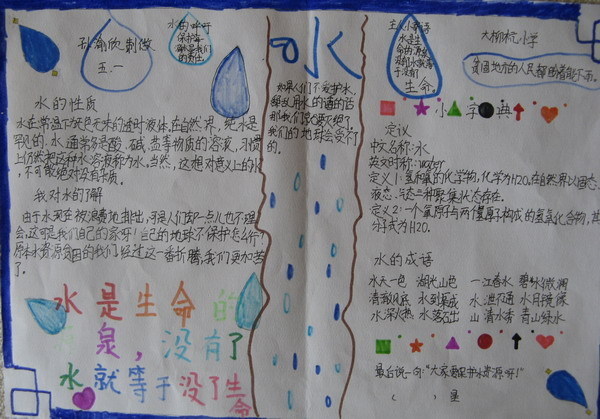 孙瀚欣制做
五.一
水的呼吁
保护每一
是我们
的责任
水的性质
水在常温下无色无味的透明液体,在自然界,纯水是
罕见的,水通常多是酸、碱、盐等物质的溶液,习惯
上仍然把这种水溶液称为水,当然,这想对意义上的水
,不可能绝对没有杂质。
我对水的了解
由于水天在被浪费地排出,可是人们却一点儿也不理
会,这可是我们自己的家呀!自己的地球不保护怎么行?
原本水资源贫困的我们经过这一番折腾,我们更加苦
了。
水是生命的
泉,没有了
水就等于没了生
命
水
如果人们不爱护水,
乱用水的通的话
那我们
我们的地球会受
的
主人小
水是生
命的源
没有
了
生命。
大柳杭小学
贫困地方的人民都因着能不雨。
小字典
定议
中文名称:水
英文对称:water
定义1:氢和氧的化学物,化学为H2O。在自然界以固态、
液态、气态三种聚集状态存在。
定义2:一个氧原子与两个氢原子构成的氢氧化合物,其
分子式为H2O。
水的成语
水天一色 湖光山色 一江春水 碧水微澜
清澈见底 水到渠成 水泄不通 水月镜像
水深火热 水落石出 山清水秀 青山绿水
最后说一句:“大家要保护水资源呀!”
( ) 星